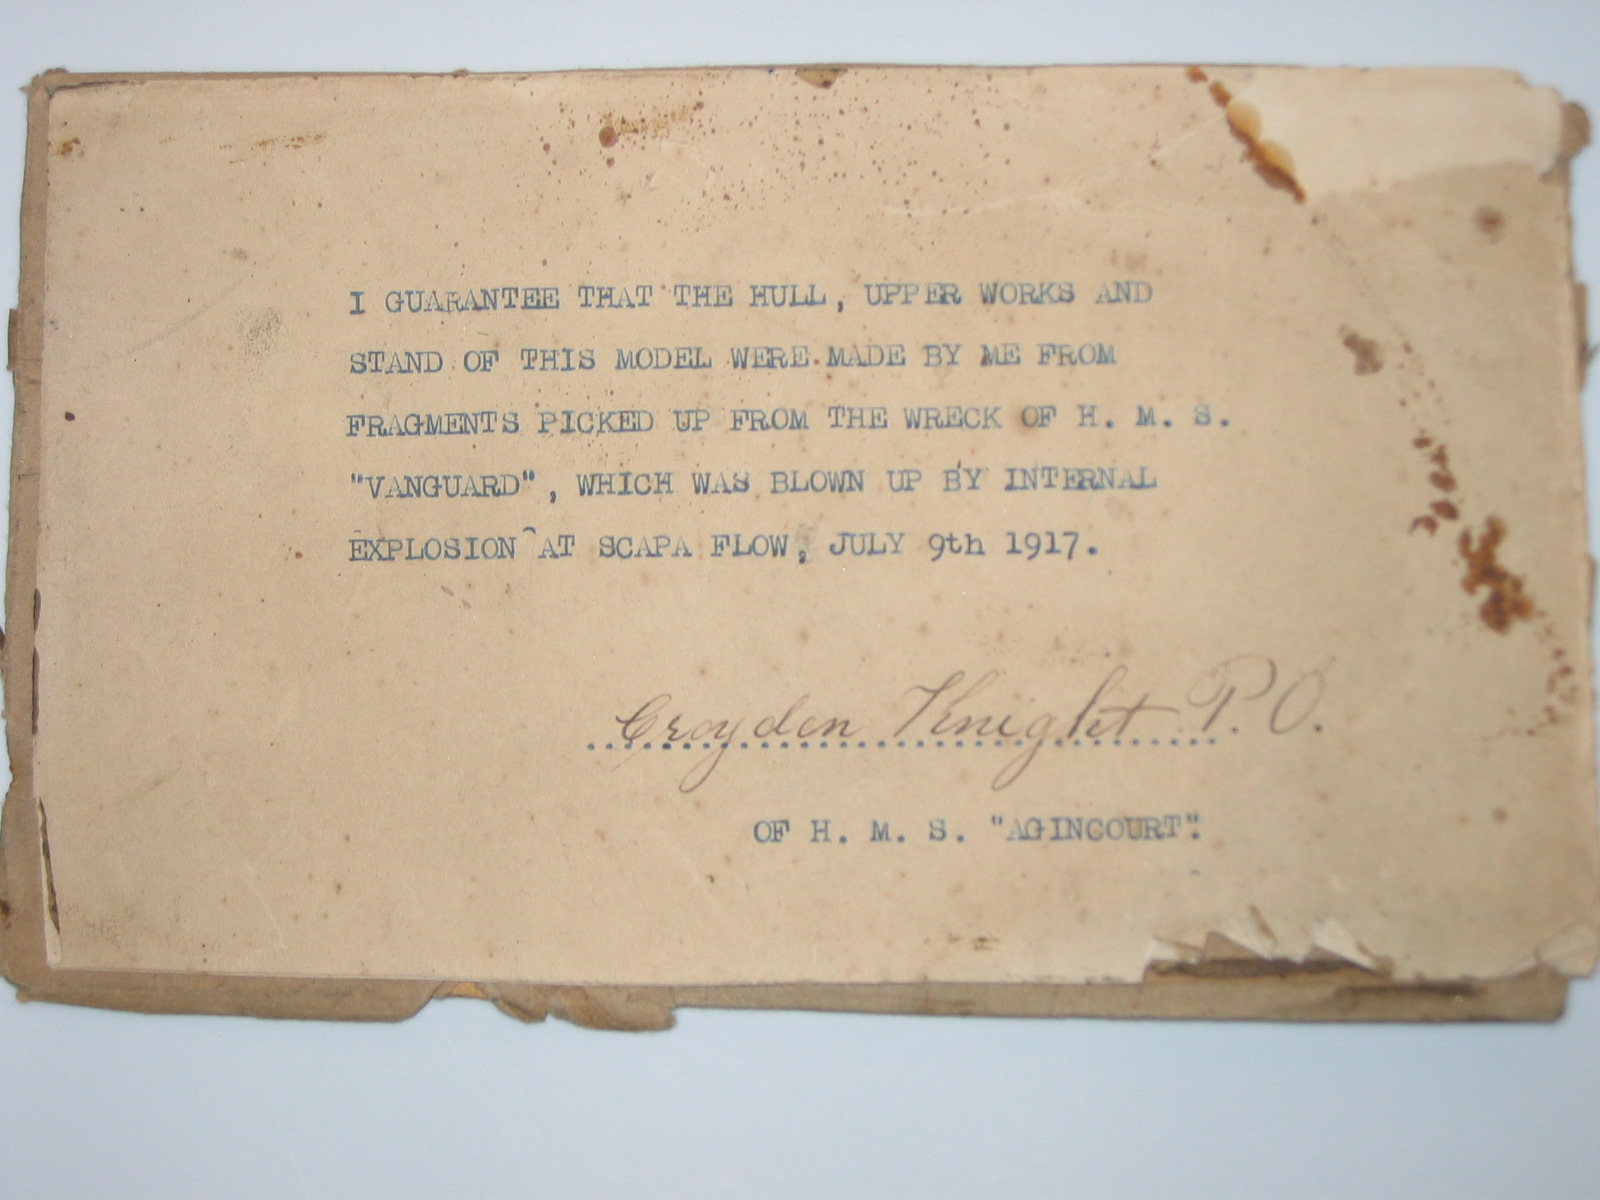 I GUARANTEE THAT THE HULL, UPPER WORKS AND
STAND OF THIS MODEL WERE MADE BY ME FROM
FRAGMENTS PICKED UP FROM THE WRECK OF H. M. S.
"VANGUARD", WHICH WAS BLOWN UP BY INTERNAL
EXPLOSION AT SCAPA FLOW, JULY 9th 1917.
Croyden Knight P.O.
OF H. M. S. "AGINCOURT".